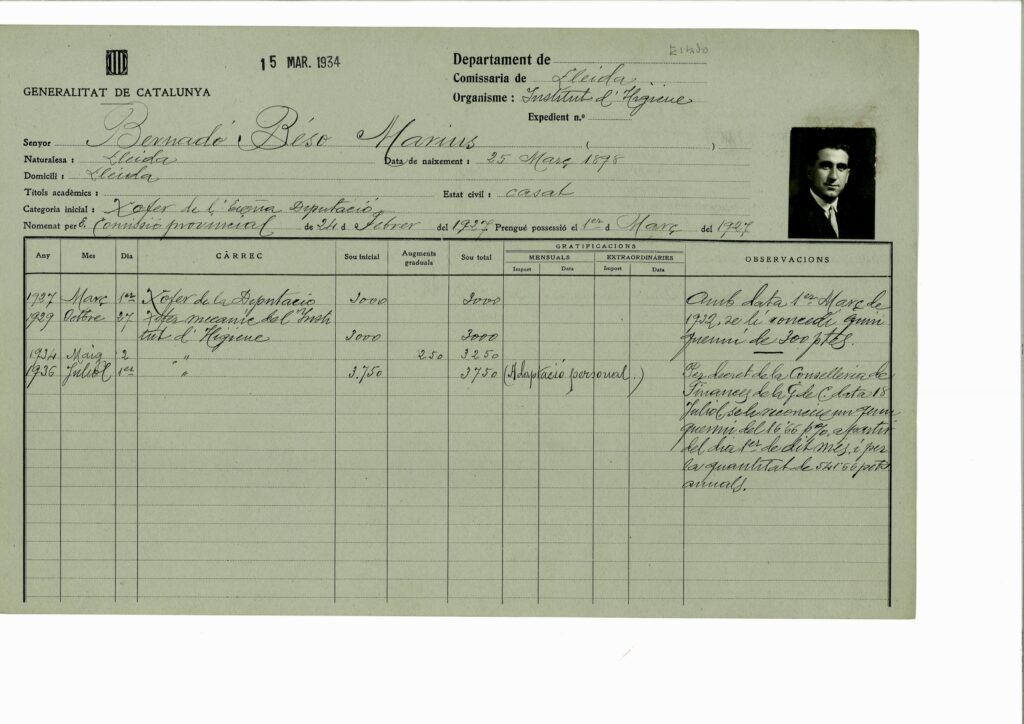 Estado
15 MAR. 1934
GENERALITAT DE CATALUNYA
Departament de
Comissaria de Lleida
Organisme : Institut d'Higiene
Expedient n.º
Senyor Bernadó Béso Marius ( )
Naturalesa : Lleida Data de naixement : 25 Març 1898
Domicili : Lleida
Títols acadèmics : Estat civil : casat
Categoria inicial : Xofer de l'Excma Diputació
Nomenat per C. Comissió provincial de 24 d Febrer del 1927. Prengué possessió el 1er d Març del 1927
Any Mes Dia CÀRREC Sou inicial Augments graduals Sou total GRATIFICACIONS OBSERVACIONS
MENSUALS EXTRAORDINÀRIES
Import Data Import Data
1927 Març 1er Xofer de la Diputació 3000 3000
1929 Octbre 27 Xofer mecànic del Insti
tut d'Higiene 3000 3000
1934 Maig 2 " 250 3250
1936 Juliol 1er " 3.750 3750 (Adaptació personal.)
Amb data 1er Març de
1932, se li concedí quin
quenni de 300 ptes.
Per decret de la Conselleria de
Finances de la G. de C. data 18
Juliol, se le reconeix un quin
quenni del 16'66 p%, a partir
del dia 1er de dit mes, i per
la quantitat de 541'66 pets
anuals.